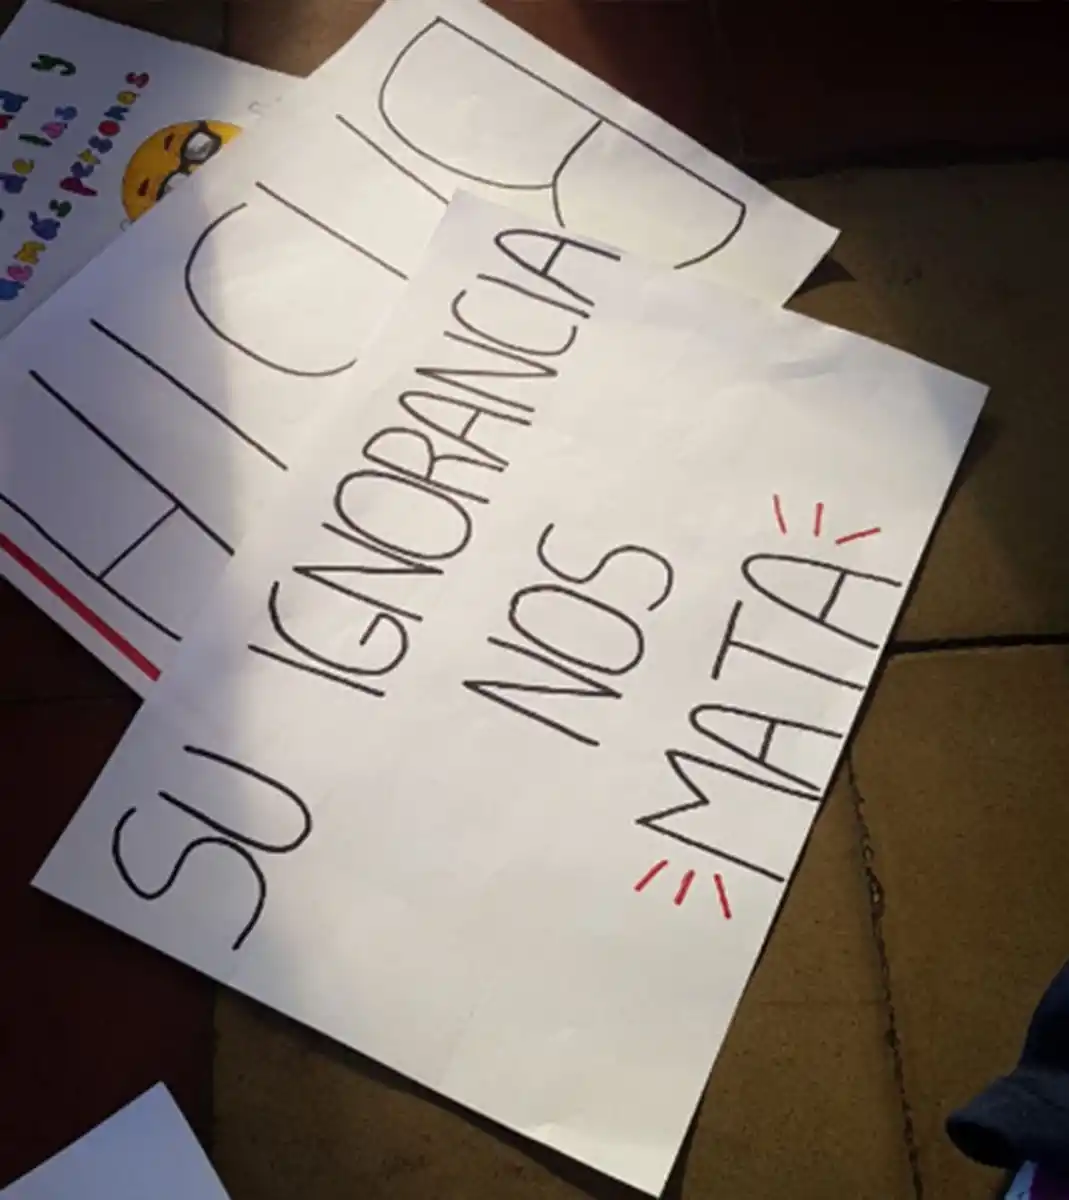 y
de las
demás personas
SU IGNORANCIA
NOS
MATA